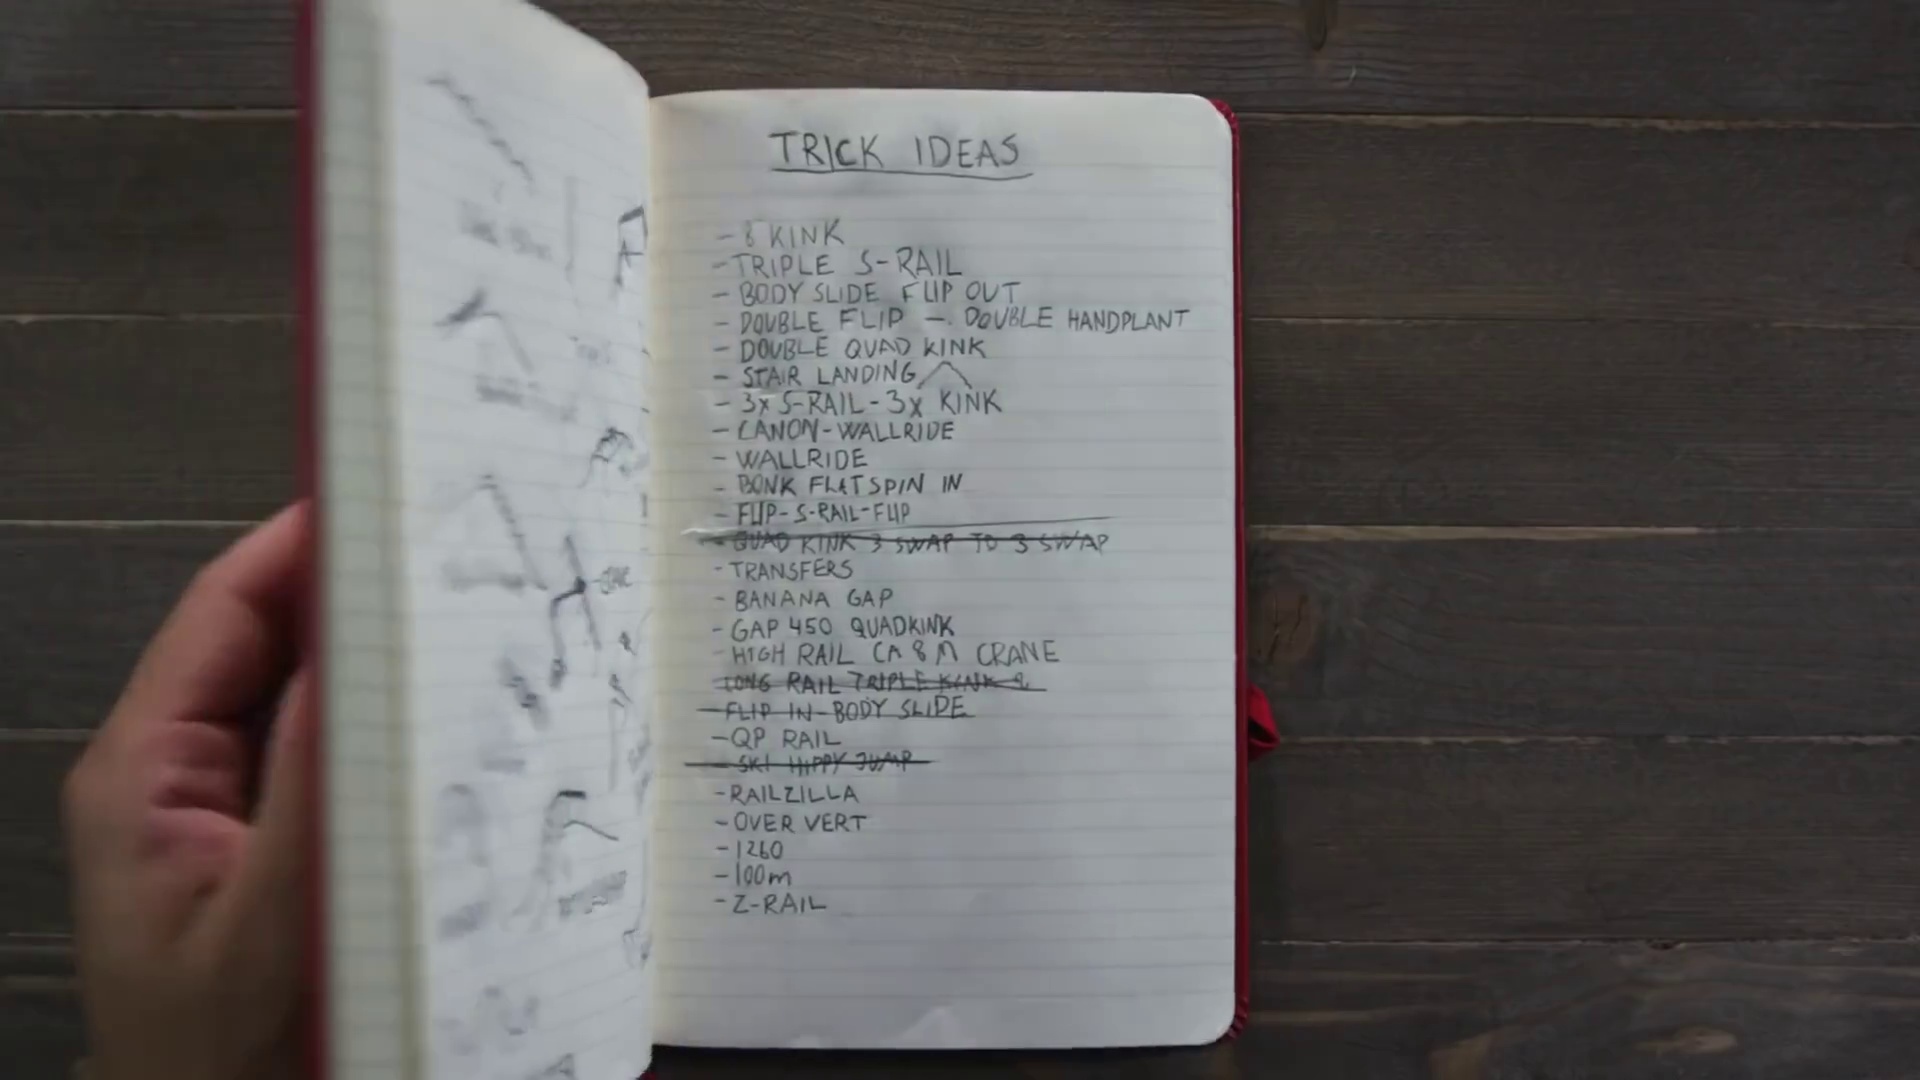 TRICK IDEAS
- 8 KINK
- TRIPLE S-RAIL
- BODY SLIDE FLIP OUT
- DOUBLE FLIP - DOUBLE HANDPLANT
- DOUBLE QUAD KINK
- STAIR LANDING
- 3x S-RAIL - 3x KINK
- CANON-WALLRIDE
- WALLRIDE
- BONK FLATSPIN IN
- FLIP-S-RAIL-FLIP
- QUAD KINK 3 SWAP TO 3 SWAP
- TRANSFERS
- BANANA GAP
- GAP 450 QUADKINK
- HIGH RAIL CA 8 M CRANE
- LONG RAIL TRIPLE KINK
- FLIP IN-BODY SLIDE
- QP RAIL
- SKI HIPPY JUMP
- RAILZILLA
- OVER VERT
- 1260
- 100m
- Z-RAIL